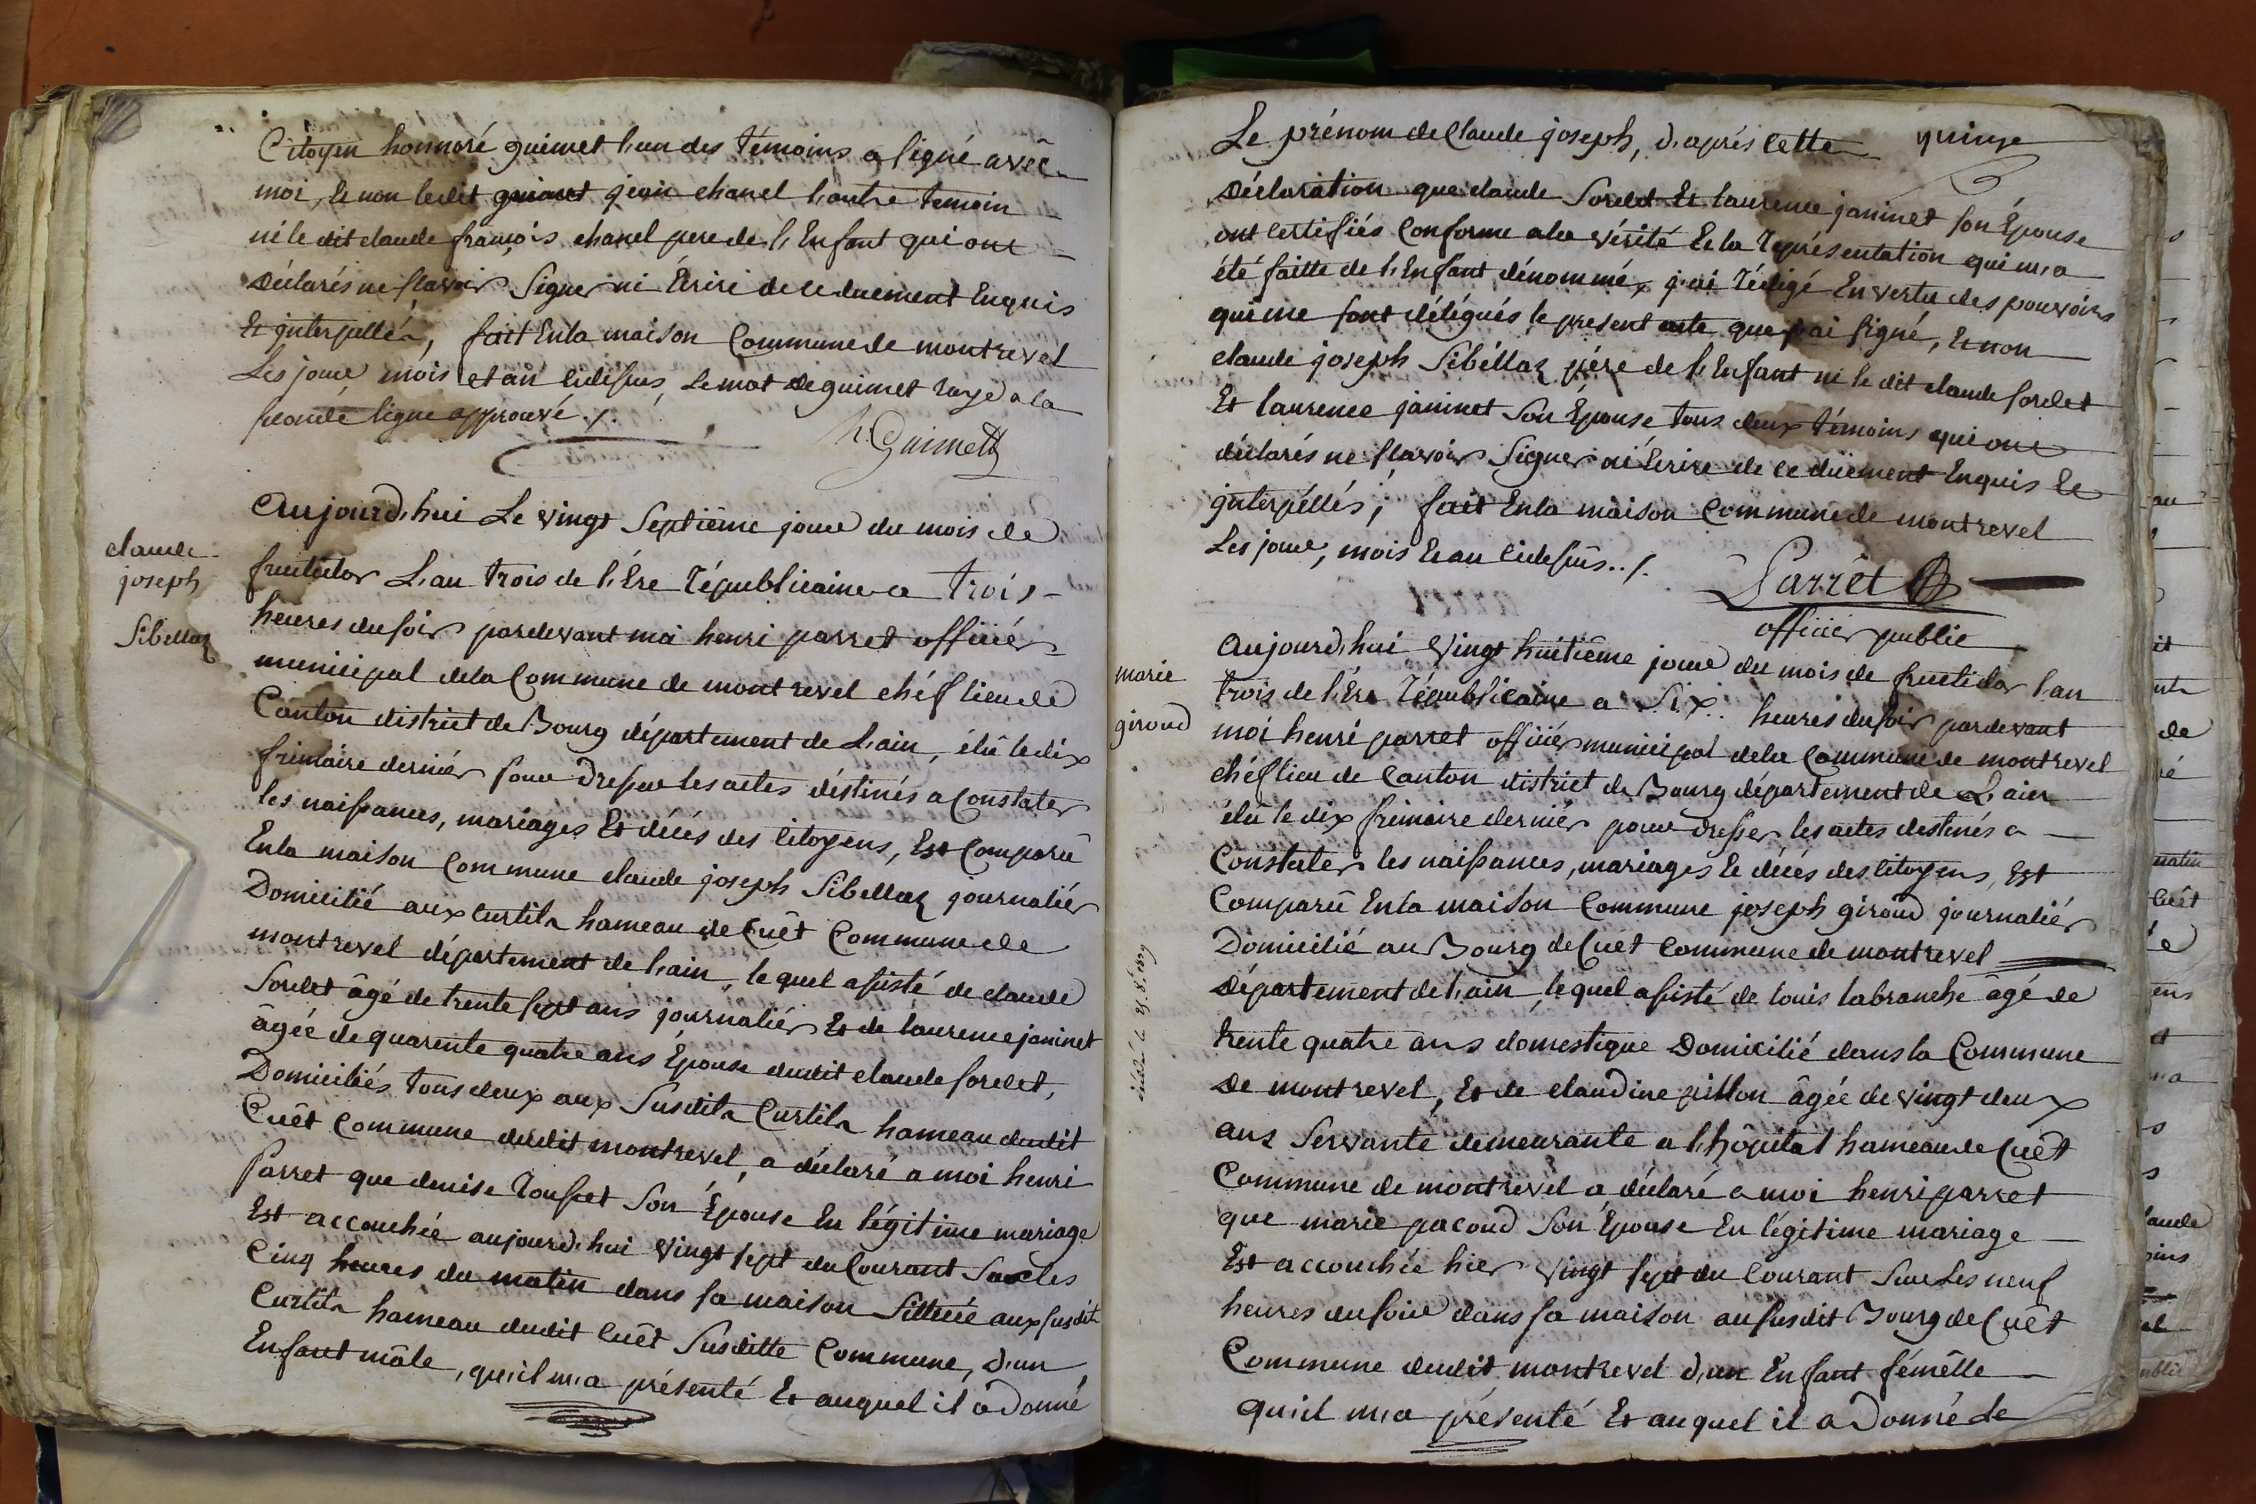 Citoyen honnoré guimet l,un des témoins a signé avec
moi, & non ledit guimet jean chanel l,autre temoin
ni le dit claude françois chanel pere de l,Enfant qui ont
déclarés ne sçavoir Signer ni Ecrire de ce duement Enquis
Et interpellés, fait En la maison Commune de montrevel
Les jour mois et an cidessus, le mot de guimet rayé a la
seconde ligne approuvé ./.
h. Guimet
claude
joseph
Sibellaz
Aujourd,hui Le vingt Septiême jour du mois de
fructidor L,an trois de l,Ere républicaine a trois
heures du soir pardevant moi henri parret officiér
municipal de la Commune de montrevel chéf lieu de
Canton district de Bourg département de L,ain, élû le dix
frimaire derniér pour dresser les actes déstinés a Constater
les naissances, mariages Et décés des citoyens, Est Comparû
En la maison Commune claude joseph Sibellaz journaliér
Domicilié aux Curtils hameau de Cuêt Commune de
montrevel département de l,ain, lequel assisté de claude
Sorlet âgé de trente sept ans journaliér Et de laurence janinet
âgée de quarente quatre ans Épouse dudit claude sorlet,
Domiciliés tous deux aux Susdits Curtils hameau dudit
Cuêt Commune dudit montrevel, a déclaré a moi henri
parret que denise rousset Son Épouse En légitime mariage
Est accouchée aujourd,hui vingt sept du Courant Sur les
Cinq heures du matin dans sa maison Sittuée aux susdit
Curtils hameau dudit Cuêt Susditte Commune, d,un
Enfant mâle, qu,il m,a présenté Et auquel il a donné
quinze
Le prénom de Claude joseph, d,aprés cette
Déclaration que claude Sorlet Et laurence janinet son Épouse
ont certifiés Conforme a la vérité & la représentation qui m,a
été faitte de l,Enfant dénommé, j,ai rédigé En vertu des pouvoirs
qui me sont délégués le present acte que j,ai signé, Et non
claude joseph Sibéllaz pére de l,Enfant ni le dit claude sorlet
Et laurence janinet Son Épouse tous deux témoins qui ont
déclarés ne sçavoir Signer ni Écrire de ce duement Enquis &
interpéllés, fait En la maison Commune de montrevel
Les jour, mois & an cidessus ./.
Parret
officier public
marie
giroud
Aujourd,hui vingt huitiême jour du mois de fructidor l,an
trois de l,Ere républicaine a Six heures du soir pardevant
moi henri parret officiér municipal de la Commune de montrevel
chéf lieu de Canton district de Bourg département de L,ain
élû le dix frimaire derniér pour dresser les actes destinés a
Constater les naissances, mariages & décés des citoyens, Est
Comparû En la maison Commune joseph giroud journaliér
Domicilié au Bourg de Cuêt Commune de montrevel
département de l,ain, lequel assisté de louis labranche âgé de
trente quatre ans domestique Domicilié dans la Commune
de montrevel, Et de claudine pillon âgée de vingt deux
ans Servante demeurante a l,hôpital hameau de Cuêt
Commune de montrevel a déclaré a moi henri parret
que marie pacoud Son Épouse En légitime mariage
Est accouchée hier vingt sept du Courant Sur les neuf
heures du soir dans sa maison au susdit Bourg de Cuêt
Commune dudit montrevel d,un Enfant fémêlle
qu,il m,a présenté Et auquel il a Donné de